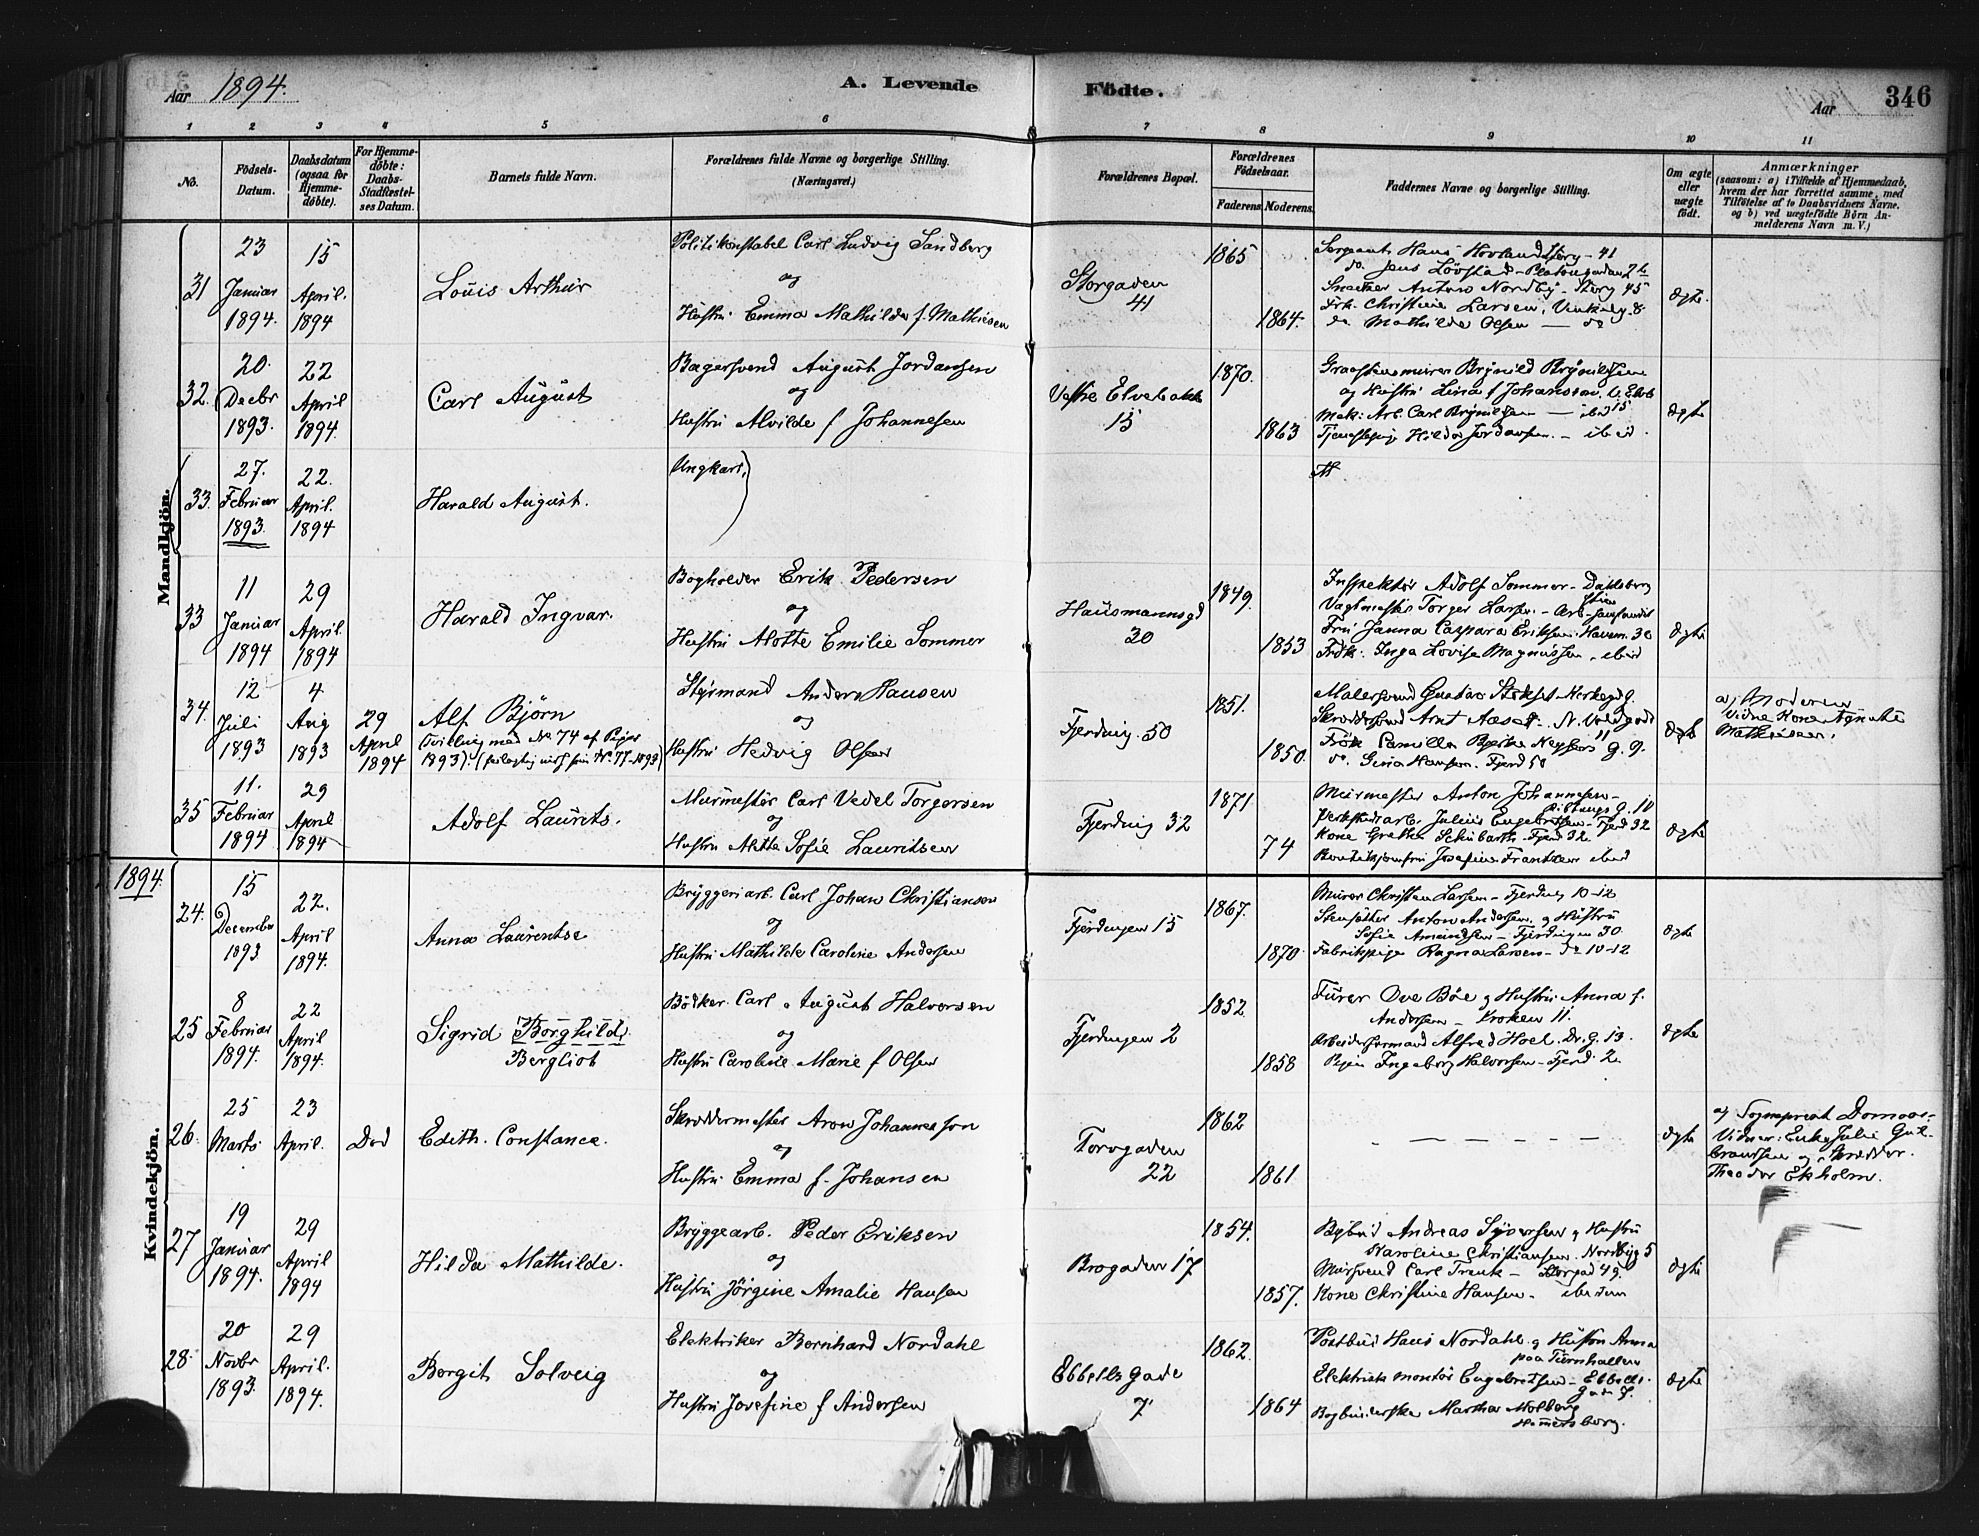 Aar 1894. A. Levende Födte. Aar 346
1 2 3 4 5 6 7 8 9 10 11
No.
Födsels-
Datum.
Daabsdatum
(ogsaa for
Hjemme-
döbte).
For Hjemme-
döbte:
Daabs-
Stadfæstel-
ses Datum.
Barnets fulde Navn.
Forældrenes fulde Navne og borgerlige Stilling.
(Næringsvei.)
Forældrenes Bopæl.
Forældrenes
Födselsaar.
Faderens. Moderens.
Faddernes Navne og borgerlige Stilling.
Om ægte
eller
uægte
födt.
Anmærkninger
(saasom: a) i Tilfælde af Hjemmedaab,
hvem der har forrettet samme, med
Tilföielse af to Daabsvidners Navne.
og b) ved uægtefödte Börn An-
melderens Navn m. V.)
Mandkjön.
31
23
Januar
1894.
15
April.
1894
Louis Arthur
Politikonstabel Carl Ludvig Sandberg
og
Hustru Emma Mathilde f. Mathiesen
Storgaden
41
1865
1864.
Sergeant Hans Hovland Storg - 41
do Jens Lövstad
Snedker Anton Nordby - Storg 45
Frk. Christine Larsen,
do Mathilde Olsen — do
ægte.
32.
20.
Decbr
1893.
22
April
1894.
Carl August
Bagersvend August Jordansen
og
Hustru Alvilde f Johannesen
Vestre Elvebakke
15
1870.
1863
Graastensmurer Brynild Brynildsen
og Hustru Lina f Johanson, V. Elvb
Mek: Arb. Carl Brynildsen — ibid 15
Tjenestepig Hilda Jordansen. - ibid.
ægte
33.
27.
Februar
1893.
22.
April.
1894
Harald August.
Ungkarl,
33
11
Januar
1894
29
April.
1894
Harald Ingvar.
Bogholder Erik Pedersen
og
Hustru Alette Emilie Sommer
Hausmannsgd
30
1849.
1853
Inspektör Adolf Sommer - Dahlsberg
stien
Vagtmester Torger Larsen. - Arb-
Fru Janna Caspara Eriksen. Hausm. 30
Frök: Inga Lovise Magnussen, ibid
ægte
34.
12
Juli
1893
4
Aug
1893
29
April
1894
Alf Björn
Tvilling med No 74 af Piger
1893).
Styrmand Anders Hansen
og
Hustru Hedvig Olsen
Fjerding. 50
1851.
1850.
Malersvend Gustav
Skræddersvend Arnt
11
Frök Camilla Bjerke
do. Gina Hansen. Fjerd 50
ægte
a) Moderen
Vidne Kone Agnete
Mathiesen.
35
11.
Februar
1894
29
April
1894
Adolf Laurits.
Murmester Carl Vedel Torgersen
og
Hustru Alette Sofie Lauritsen
Fjerding 32
1871.
74
Murmester Anton Johannesen -
Værkstedsarb. Julius Engebretsen - Fjerd 32
Kone Grethe Schubarth - Fjerd 32
Butikjomfru Josefine Frantzen ibid
ægte
1894.
Kvindekjön.
24.
15
December
1893
22.
April
1894.
Anna Laurentse
Bryggeriarb. Carl Johan Christiansen
og
Hustru Mathilde Caroline Andersen
Fjerdingen 15
1867.
1870.
Murer Christen Larsen - Fjerding 10-12
Anton Andersen. og Hustru
Sofie Amundsen - Fjerdingen 30.
Fabrikspige Ragna Larsen - do 10-12
ægte
25
8
Februar
1894.
22
April
1894.
Sigrid Borghild
Bergliot
Bödker Carl August Halvorsen
og
Hustru Caroline Marie f Olsen
Fjerdingen 2
1852.
1858
Furer Ove Böe og Hustru Anna f.
Andersen - Kroken 11.
Arbeidsformand Alfred Hoel. Dr. G. 13.
Pigen Ingeborg Halvorsen - Fjerd. 2.
ægte
26.
25
Marts
23
April.
Död
Edith. Constance.
Skræddermester Aron Johannesson
og
Hustru Emma f. Johansen
Torvgaden
22
1862
1861
- — — — — —
ægte
a) Sognepræst Domaas -
Vidner: Enke Julie Gul-
brandsen og Skrædder.
Theodor Ekholm.
27
19
Januar
1894.
29
April
1894
Hilda Mathilde.
Bryggearb. Peder Eriksen
og
Hustru Jörgine Amalie Hansen
Brogaden 17
1854.
1857.
Bybud Andreas Syversen og Hustru
Karoline Christiansen. Nordbyg 5
Mursvend Carl Frank - Storgad 49.
Kone Christine Hansen - ibidem
ægte
28.
20
Novbr
1893.
29
April.
1894.
Borgit Solveig
Elektriker Bernhard Nordahl
og
Hustru Josefine f Andersen
Ebbells Gade
7
1862.
1864
Postbud Hans Nordahl. og Hustru Anna
paa Turnhallen
Elektrisk montör Engebretsen - Ebbells-
Gade 7.
Martha Molberg
Hammersborg.
ægte